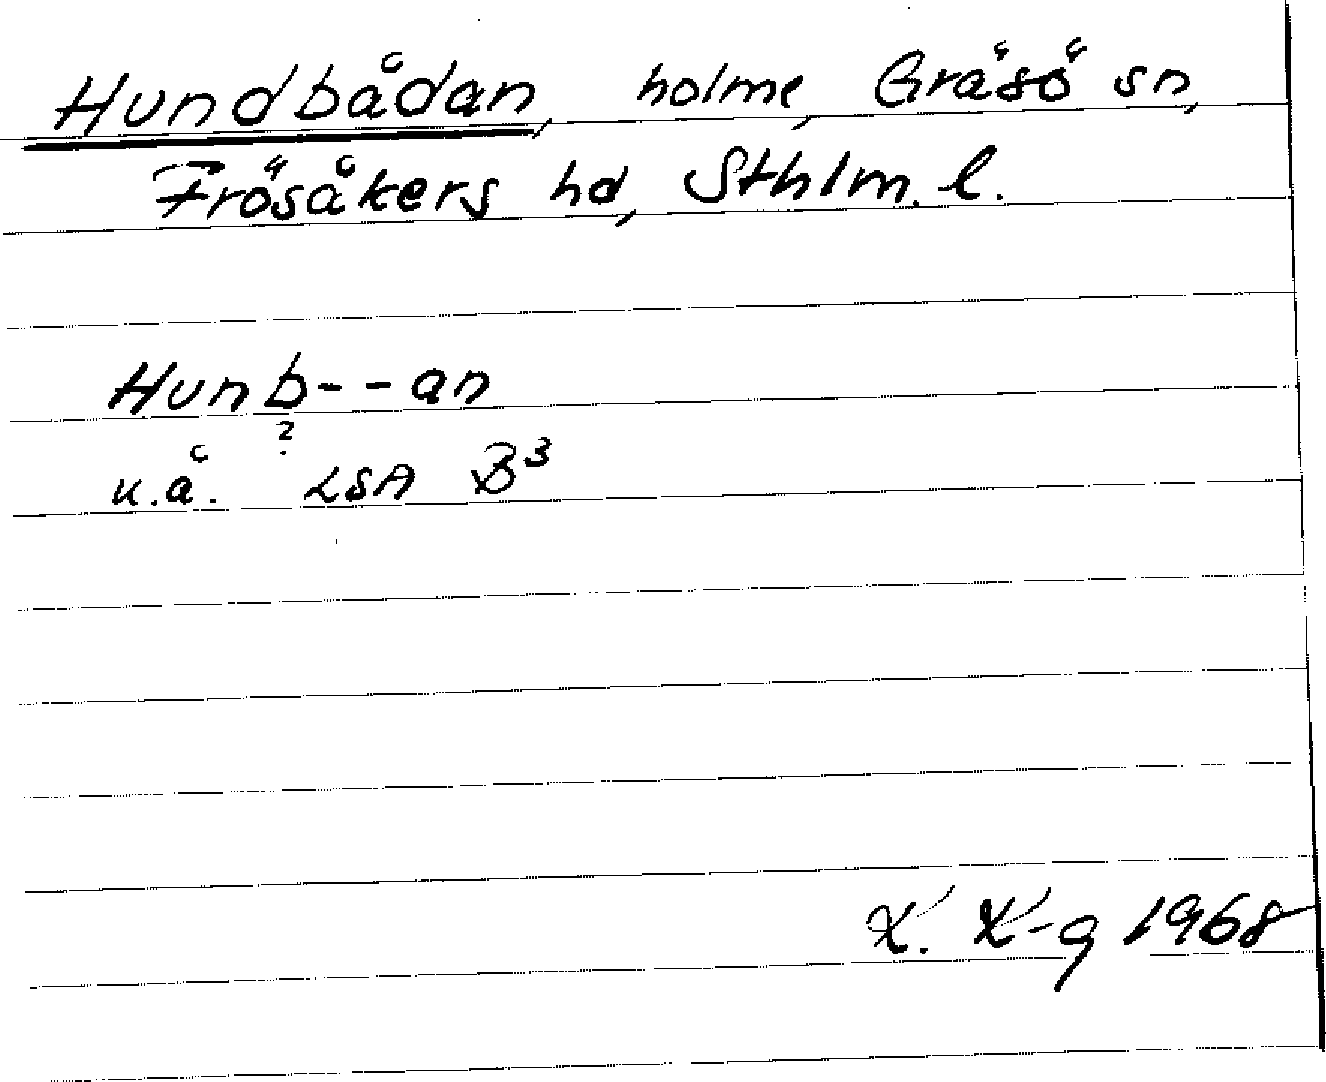 Hundbådan, holme, Gräsö sn,
Frösåkers hd, Sthlm. l.
Hunb--an
?
u.å. LSA B³
K. K-g 1968